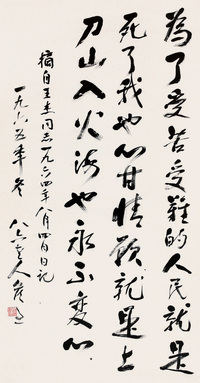 為了受苦受難的人民就是
死了我也心甘情願就是上
刀山入火海也永不变心
摘自王杰同志一九六四年八月四日日記
一九六五年冬
八六叟人